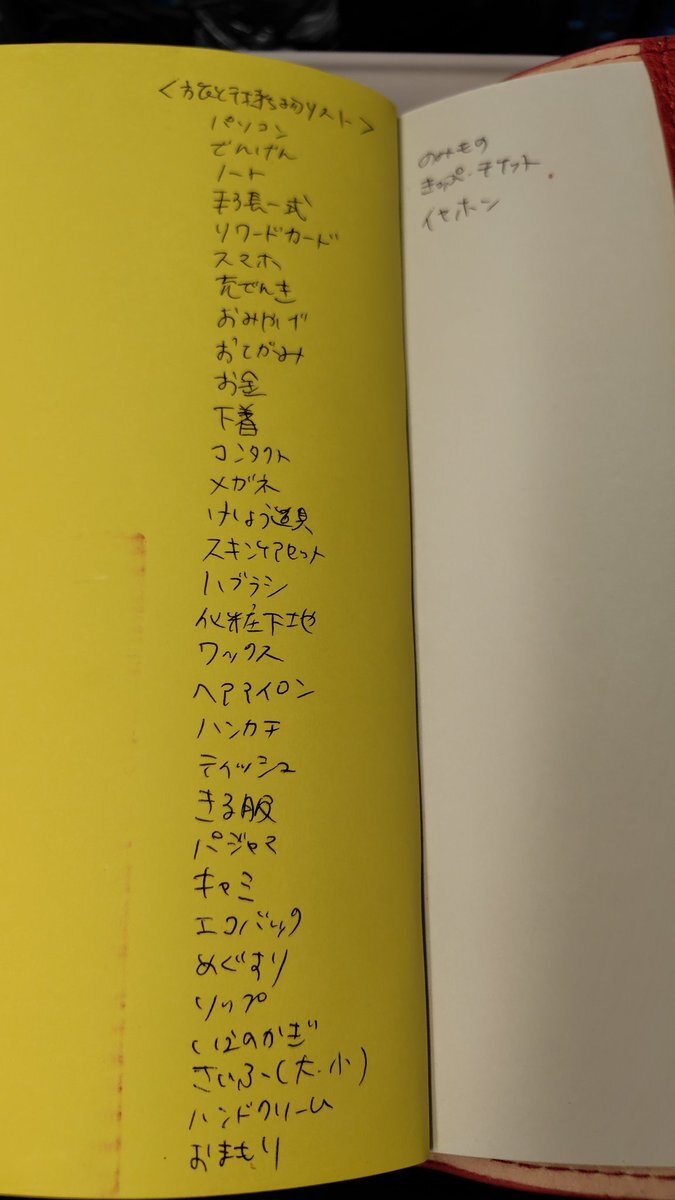 持ちものリスト>
パソコン
でんげん
ノート
手帳一式
リワードカード
スマホ
充でんき
おみやげ
おてがみ
お金
下着
コンタクト
メガネ
けしょう道具
スキンケアセット
ハブラシ
化粧下地
ワックス
ヘアアイロン
ハンカチ
ティッシュ
きる服
パジャマ
キャミ
エコバック
めぐすり
リップ
のかぎ
さいふー(大・小)
ハンドクリーム
おまもり
のみもの
きっぷ・チケット
イヤホン